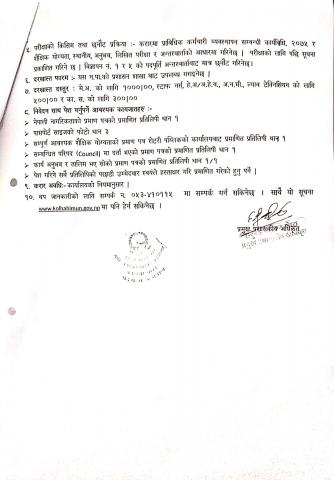 ५. परीक्षाको किसिम तथा छनौट प्रकिया :- करारमा प्राविधिक कर्मचारी व्यवस्थापन सम्बन्धी कार्यविधि, २०७५ र
शैक्षिक योग्यता, स्थानीय, अनुभव, लिखित परीक्षा र अन्तरवार्ताको आधारमा गरिनेछ । परीक्षाको लागि पछि सूचना
प्रकाशित गरिने छ । विज्ञापन नं. १ र ५ को पदपूर्ति अन्तरवार्ताबाट मात्र छनौट गरिनेछ।
६. दरखास्त फारम :- यस न.पा.को प्रशासन शाखा बाट उपलब्ध गराइनेछ ।
७. दरखास्त दस्तुर : मे.अ. को लागि १०००|००, स्टाफ नर्स, हे.अ/अ.हे.व., अ.न.मी., ल्याब टेक्निसियन को लागि
५००|०० र का. स. को लागि ३००|००
८. निवेदन साथ पेश गर्नुपर्ने आवश्यक कागजातहरु :-
➢ नेपाली नागरिकताको प्रमाण पत्रको प्रमाणित प्रतिलिपि थान १
➢ पासपोर्ट साइजको फोटो थान ३
➢ सम्पूर्ण आवश्यक शैक्षिक योग्यताको प्रमाण पत्र नोटरी पब्लिकको कार्यालयबाट प्रमाणित प्रतिलिपी थान १
➢ सम्बन्धित परिषद (Council) मा दर्ता भएको प्रमाण पत्रको प्रमाणित प्रतिलिपि थान १
➢ कार्य अनुभव र तालिम भए सोको प्रमाण पत्रको प्रमाणित प्रतिलिपि थान १/१
➢ पेश गरिने सबै प्रतिलिपिको पछाडी उम्मेदवार स्वयंले हस्ताक्षर गरि प्रमाणित गरेको हुनु पर्ने ।
९. करार अवधिः-कार्यालयको नियमानुसार ।
१०. थप जानकारीको लागि सम्पर्क न. ०५३-४१०११५ मा सम्पर्क गर्न सकिनेछ । साथै यो सूचना
www.kolhabimun.gov.np मा पनि हेर्न सकिनेछ ।
प्रमुख प्रशासकीय अधिकृत